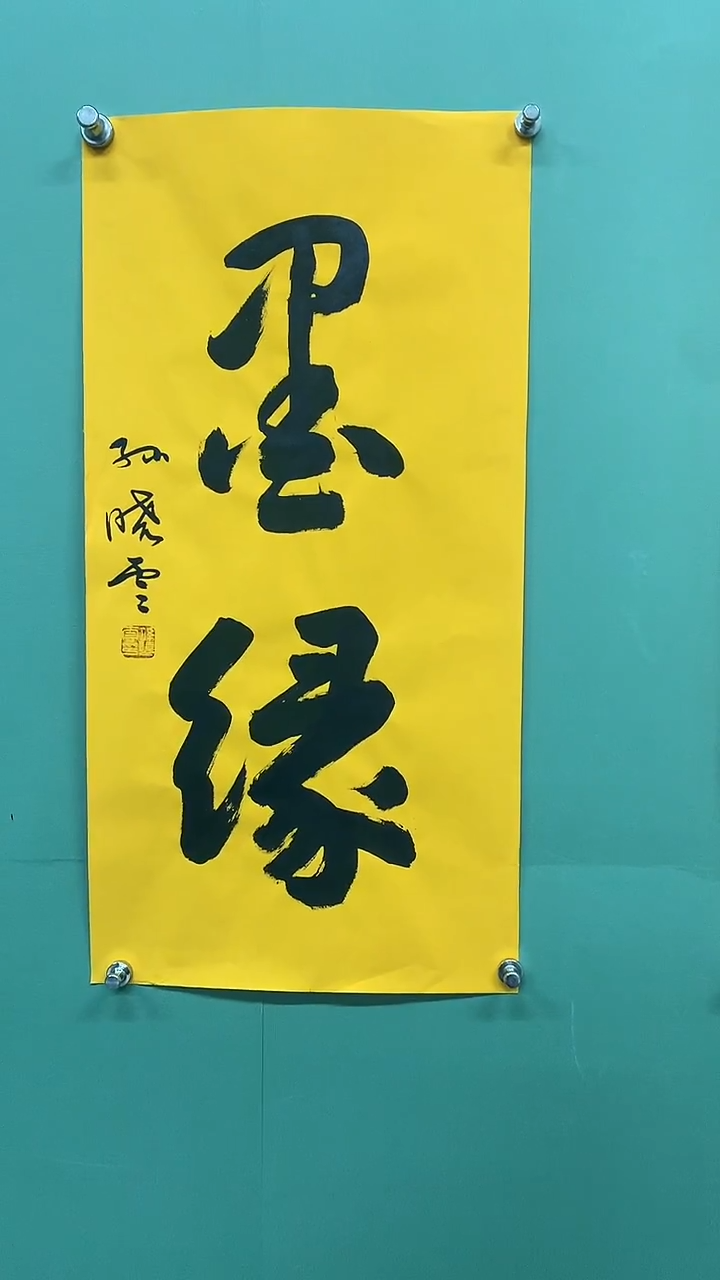 墨缘
孙晓云